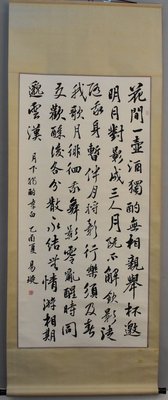 花間一壺酒獨酌無相親舉杯邀
明月對影成三人月既不解飲影徒
隨我身暫伴月將影行樂須及春
我歌月徘徊我舞影零亂醒時同
交歡醉後各分散永結無情游相期
邈雲漢 月下獨酌 李白 乙酉夏 易